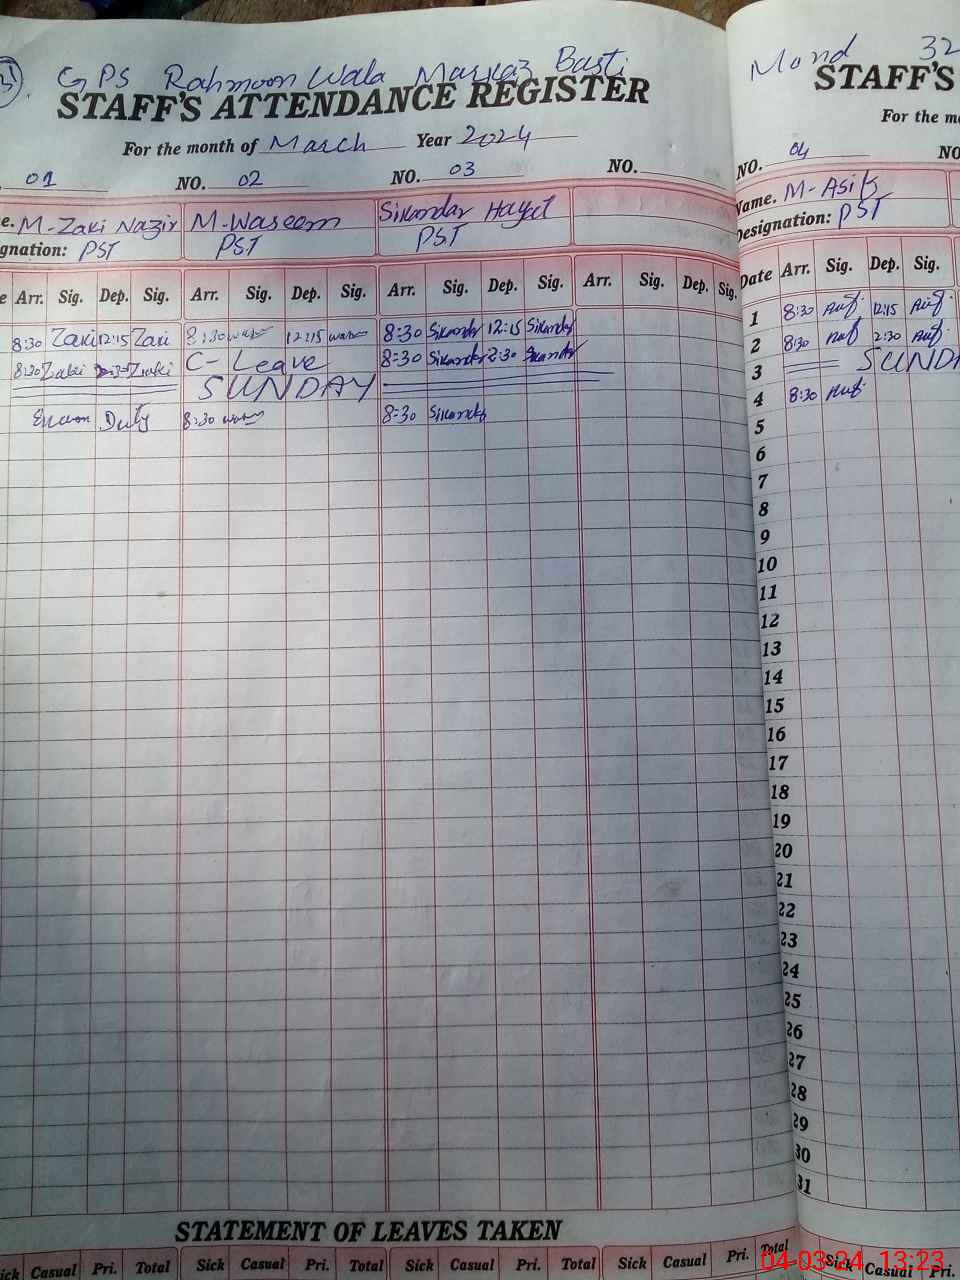 GPS Rahmoon Wala Markaz Basti
STAFF'S ATTENDANCE REGISTER
For the month of March Year 2024
01 NO. 02 NO. 03 NO.
e. M-Zaki Nazir M-Waseem Sikandar Hayat
gnation: PST PST PST
e Arr. Sig. Dep. Sig. Arr. Sig. Dep. Sig. Arr. Sig. Dep. Sig. Arr. Sig. Dep. Sig.
8:30 Zaki 12:15 Zaki 8:30 12:15 8:30 Sikandar 12:15 Sikandar
8:30 Zaki Zaki C- Leave 8:30 Sikandar 2:30 Sikandar
SUNDAY
Duty 8:30 8:30 Sikandar
STATEMENT OF LEAVES TAKEN
ick Casual Pri. Total Sick Casual Pri. Total Sick Casual Pri. Total Sick Casual Pri. Total
32
STAFF'S
For the m
NO. 04 NO
Name. M-Asif
Designation: PST
Date Arr. Sig. Dep. Sig.
1 8:30 Asif 12:15 Asif
2 8:30 Asif 2:30 Asif
3 SUND
4 8:30 Asif
5
6
7
8
9
10
11
12
13
14
15
16
17
18
19
20
21
22
23
24
25
26
27
28
29
30
31
Sick Casual Pri.
04-03-24 13:23